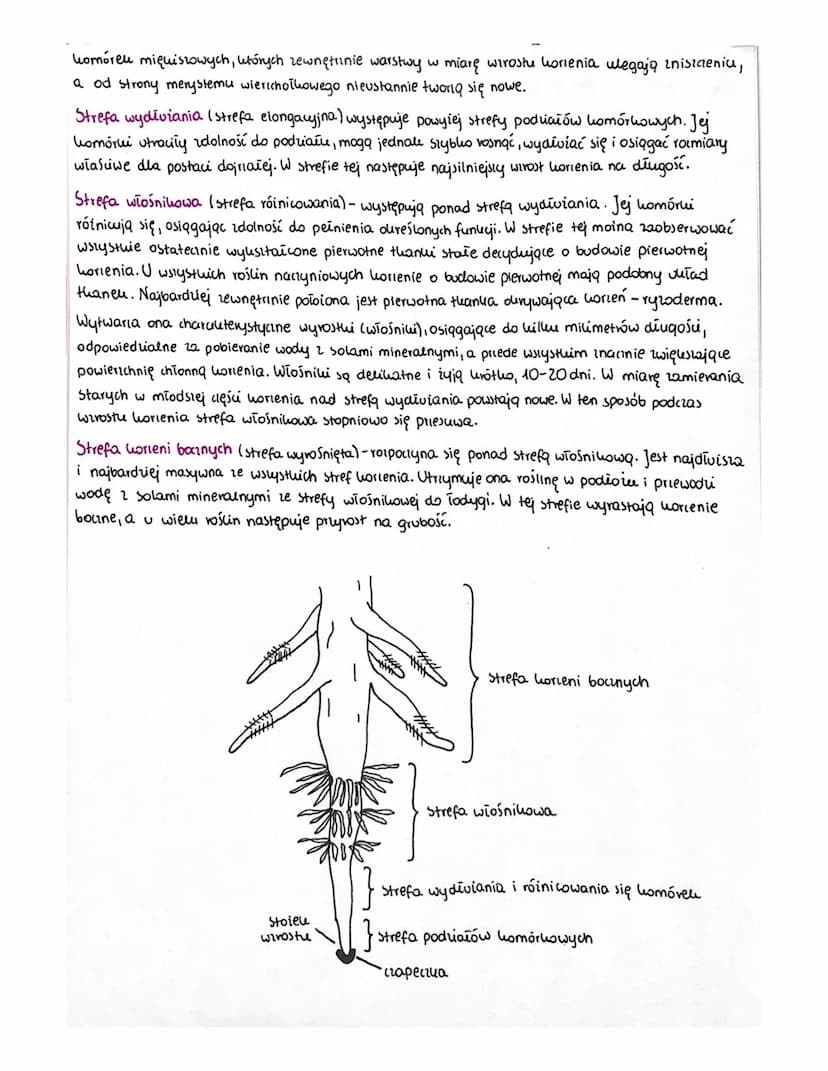 komórek miękiszowych, których zewnętrznie warstwy w miarę wzrostu korzenia ulegają zniszczeniu,
a od strony merystemu wierzchołkowego nieustannie tworzą się nowe.
Strefa wydłużania (strefa elongacyjna) występuje powyżej strefy podziałów komórkowych. Jej
komórki utraciły zdolność do podziału, mogą jednak szybko rosnąć, wydłużać się i osiągać rozmiary
właściwe dla postaci dojrzałej. W strefie tej następuje najsilniejszy wzrost korzenia na długość.
Strefa włośnikowa (strefa różnicowania) - występują ponad strefą wydłużania. Jej komórki
różnicują się, osiągając zdolność do pełnienia określonych funkcji. W strefie tej można zaobserwować
wszystkie ostatecznie wykształcone pierwotne tkanki stałe decydujące o budowie pierwotnej
korzenia. U wszystkich roślin naczyniowych korzenie o budowie pierwotnej mają podobny układ
tkanek. Najbardziej zewnętrznie położona jest pierwotna tkanka okrywająca korzeń - ryzoderma.
Wytwarza ona charakterystyczne wyrostki (włośniki), osiągające do kilku milimetrów długości,
odpowiedzialne za pobieranie wody z solami mineralnymi, a przede wszystkim znacznie zwiększające
powierzchnię chłonną korzenia. Włośniki są delikatne i żyją krótko, 10-20 dni. W miarę zamierania
starych w młodszej części korzenia nad strefą wydłużania powstają nowe. W ten sposób podczas
wzrostu korzenia strefa włośnikowa stopniowo się przesuwa.
Strefa korzeni bocznych (strefa wyrośnięta) - rozpoczyna się ponad strefą włośnikową. Jest najdłuższa
i najbardziej masywna ze wszystkich stref korzenia. Utrzymuje ona roślinę w podłożu i przewodzi
wodę z solami mineralnymi ze strefy włośnikowej do łodygi. W tej strefie wyrastają korzenie
boczne, a u wielu roślin następuje przyrost na grubość.
strefa korzeni bocznych
strefa włośnikowa
strefa wydłużania i różnicowania się komórek
stożek
wzrostu
strefa podziałów komórkowych
czapeczka